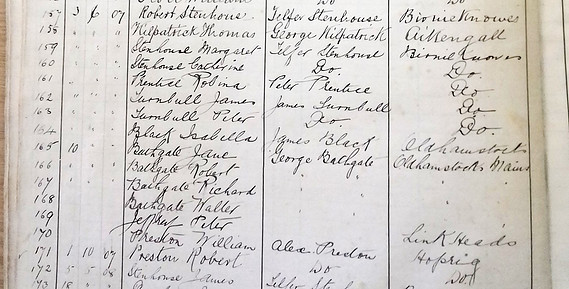 Do Do
157 3 6 07 Robert Stenhouse Telfer Stenhouse Birnieknowes
158 " " " Kilpatrick Thomas George Kilpatrick Aikengall
159 " " " Stenhouse Margaret Telfer Stenhouse Birnieknowes
160 " " Stenhouse Catherine Do. Do.
161 " " Prentice Robina Peter Prentice Do
162 " " Turnbull James James Turnbull Do
163 " " Turnbull Peter Do. Do.
164 " " Black Isabella James Black Oldhamstocks
165 10 " Bathgate Jane George Bathgate Oldhamstocks Mains
166 " " Bathgate Robert " "
167 " " Bathgate Richard " "
168 Bathgate Walter " "
169 Jeffrey Peter
170 Preston William Alex Preston Link Heads
171 1 10 07 Preston Robert Do Hoprig
172 5 5 08 Stenhouse James Telfer Do
173 18